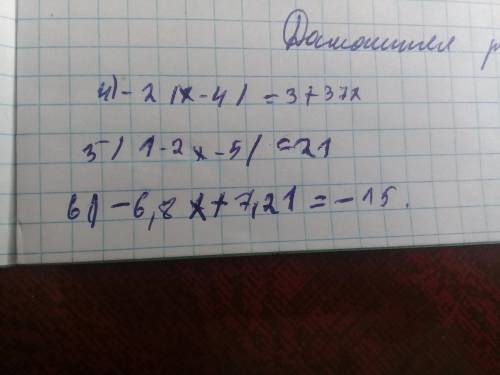 Домашняя
4) - 2 |x - 4| = 3 + 37x
5) |-2x - 5| = 21
6) - 6,8x + 7,21 = - 15.